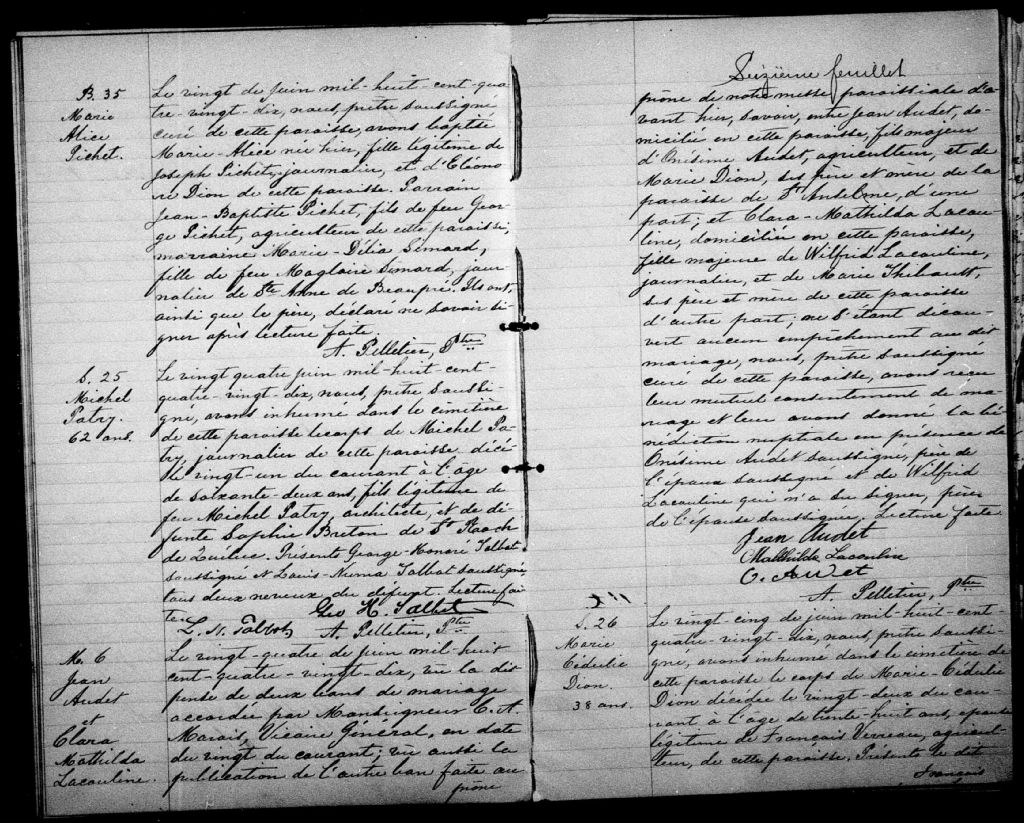 B. 35
Marie
Alice
Pichet.
Le vingt de juin mil-huit-cent-qua-
tre-vingt-dix, nous, prêtre soussigné
curé de cette paroisse, avons baptisé
Marie-Alice née hier, fille légitime de
Joseph Pichet, journalier, et d'Eléono-
re Dion de cette paroisse. Parrain
Jean-Baptiste Pichet, fils de feu Geor-
ge Pichet, agriculteur de cette paroisse,
marraine Marie-Délia Simard,
fille de feu Magloire Simard, jour-
nalier de Ste Anne de Beaupré. Ils ont,
ainsi que le père, déclaré ne savoir si-
gner après lecture faite.
A. Pelletier, Ptre
S. 25
Michel
Patry.
62 ans.
Le vingt quatre juin mil-huit-cent-
quatre-vingt-dix, nous, prêtre soussi-
gné, avons inhumé dans le cimetière
de cette paroisse le corps de Michel Pa-
try, journalier de cette paroisse, décé-
dé le vingt-un du courant à l'âge
de soixante-deux ans, fils légitime de
feu Michel Patry, architecte, et de dé-
funte Sophie Breton de St Roch
de Québec. Présents George-Honoré Talbot
soussigné et Louis-Numa Talbot soussigné,
tous deux neveux du défunt. Lecture fai-
te.
Geo H. Talbot
L. N. Talbot A. Pelletier, Ptre
M. 6
Jean
Audet
et
Clara
Mathilda
Lacouline.
Le vingt-quatre de juin mil-huit
cent-quatre-vingt-dix, vu la dis-
pense de deux bans de mariage
accordée par Monseigneur C. A.
Marois, Vicaire Général, en date
du vingt du courant; vu aussi la
publication de l'autre ban faite au
prone
Seizième feuillet
prône de notre messe paroissiale d'a-
vant hier, savoir, entre Jean Audet, do-
micilié en cette paroisse, fils majeur
d'Onésime Audet, agriculteur, et de
Marie Dion, ses père et mère de la
paroisse de St Anselme, d'une
part; et Clara-Mathilda Lacou-
line, domiciliée en cette paroisse,
fille majeure de Wilfrid Lacouline,
journalier, et de Marie Thibault,
ses père et mère de cette paroisse
d'autre part; ne s'étant décou-
vert aucun empêchement au dit
mariage, nous, prêtre soussigné
curé de cette paroisse, avons reçu
leur mutuel consentement de ma-
riage et leur avons donné la bé-
nédiction nuptiale en présence de
Onésime Audet soussigné, père de
l'époux soussigné et de Wilfrid
Lacouline qui n'a su signer, père
de l'épouse soussignée. Lecture faite
Jean Audet
Malthilda Lacouline
O. Audet
A. Pelletier, Ptre
S. 26
Marie
Cédulie
Dion.
38 ans.
Le vingt-cinq de juin mil-huit-cent-
quatre-vingt-dix, nous, prêtre soussi-
gné, avons inhumé dans le cimetière de
cette paroisse le corps de Marie-Cédulie
Dion décédée le vingt-deux du cou-
rant à l'âge de trente-huit ans, épouse
légitime de François Verreau, agricul-
teur, de cette paroisse. Présents le dit
François